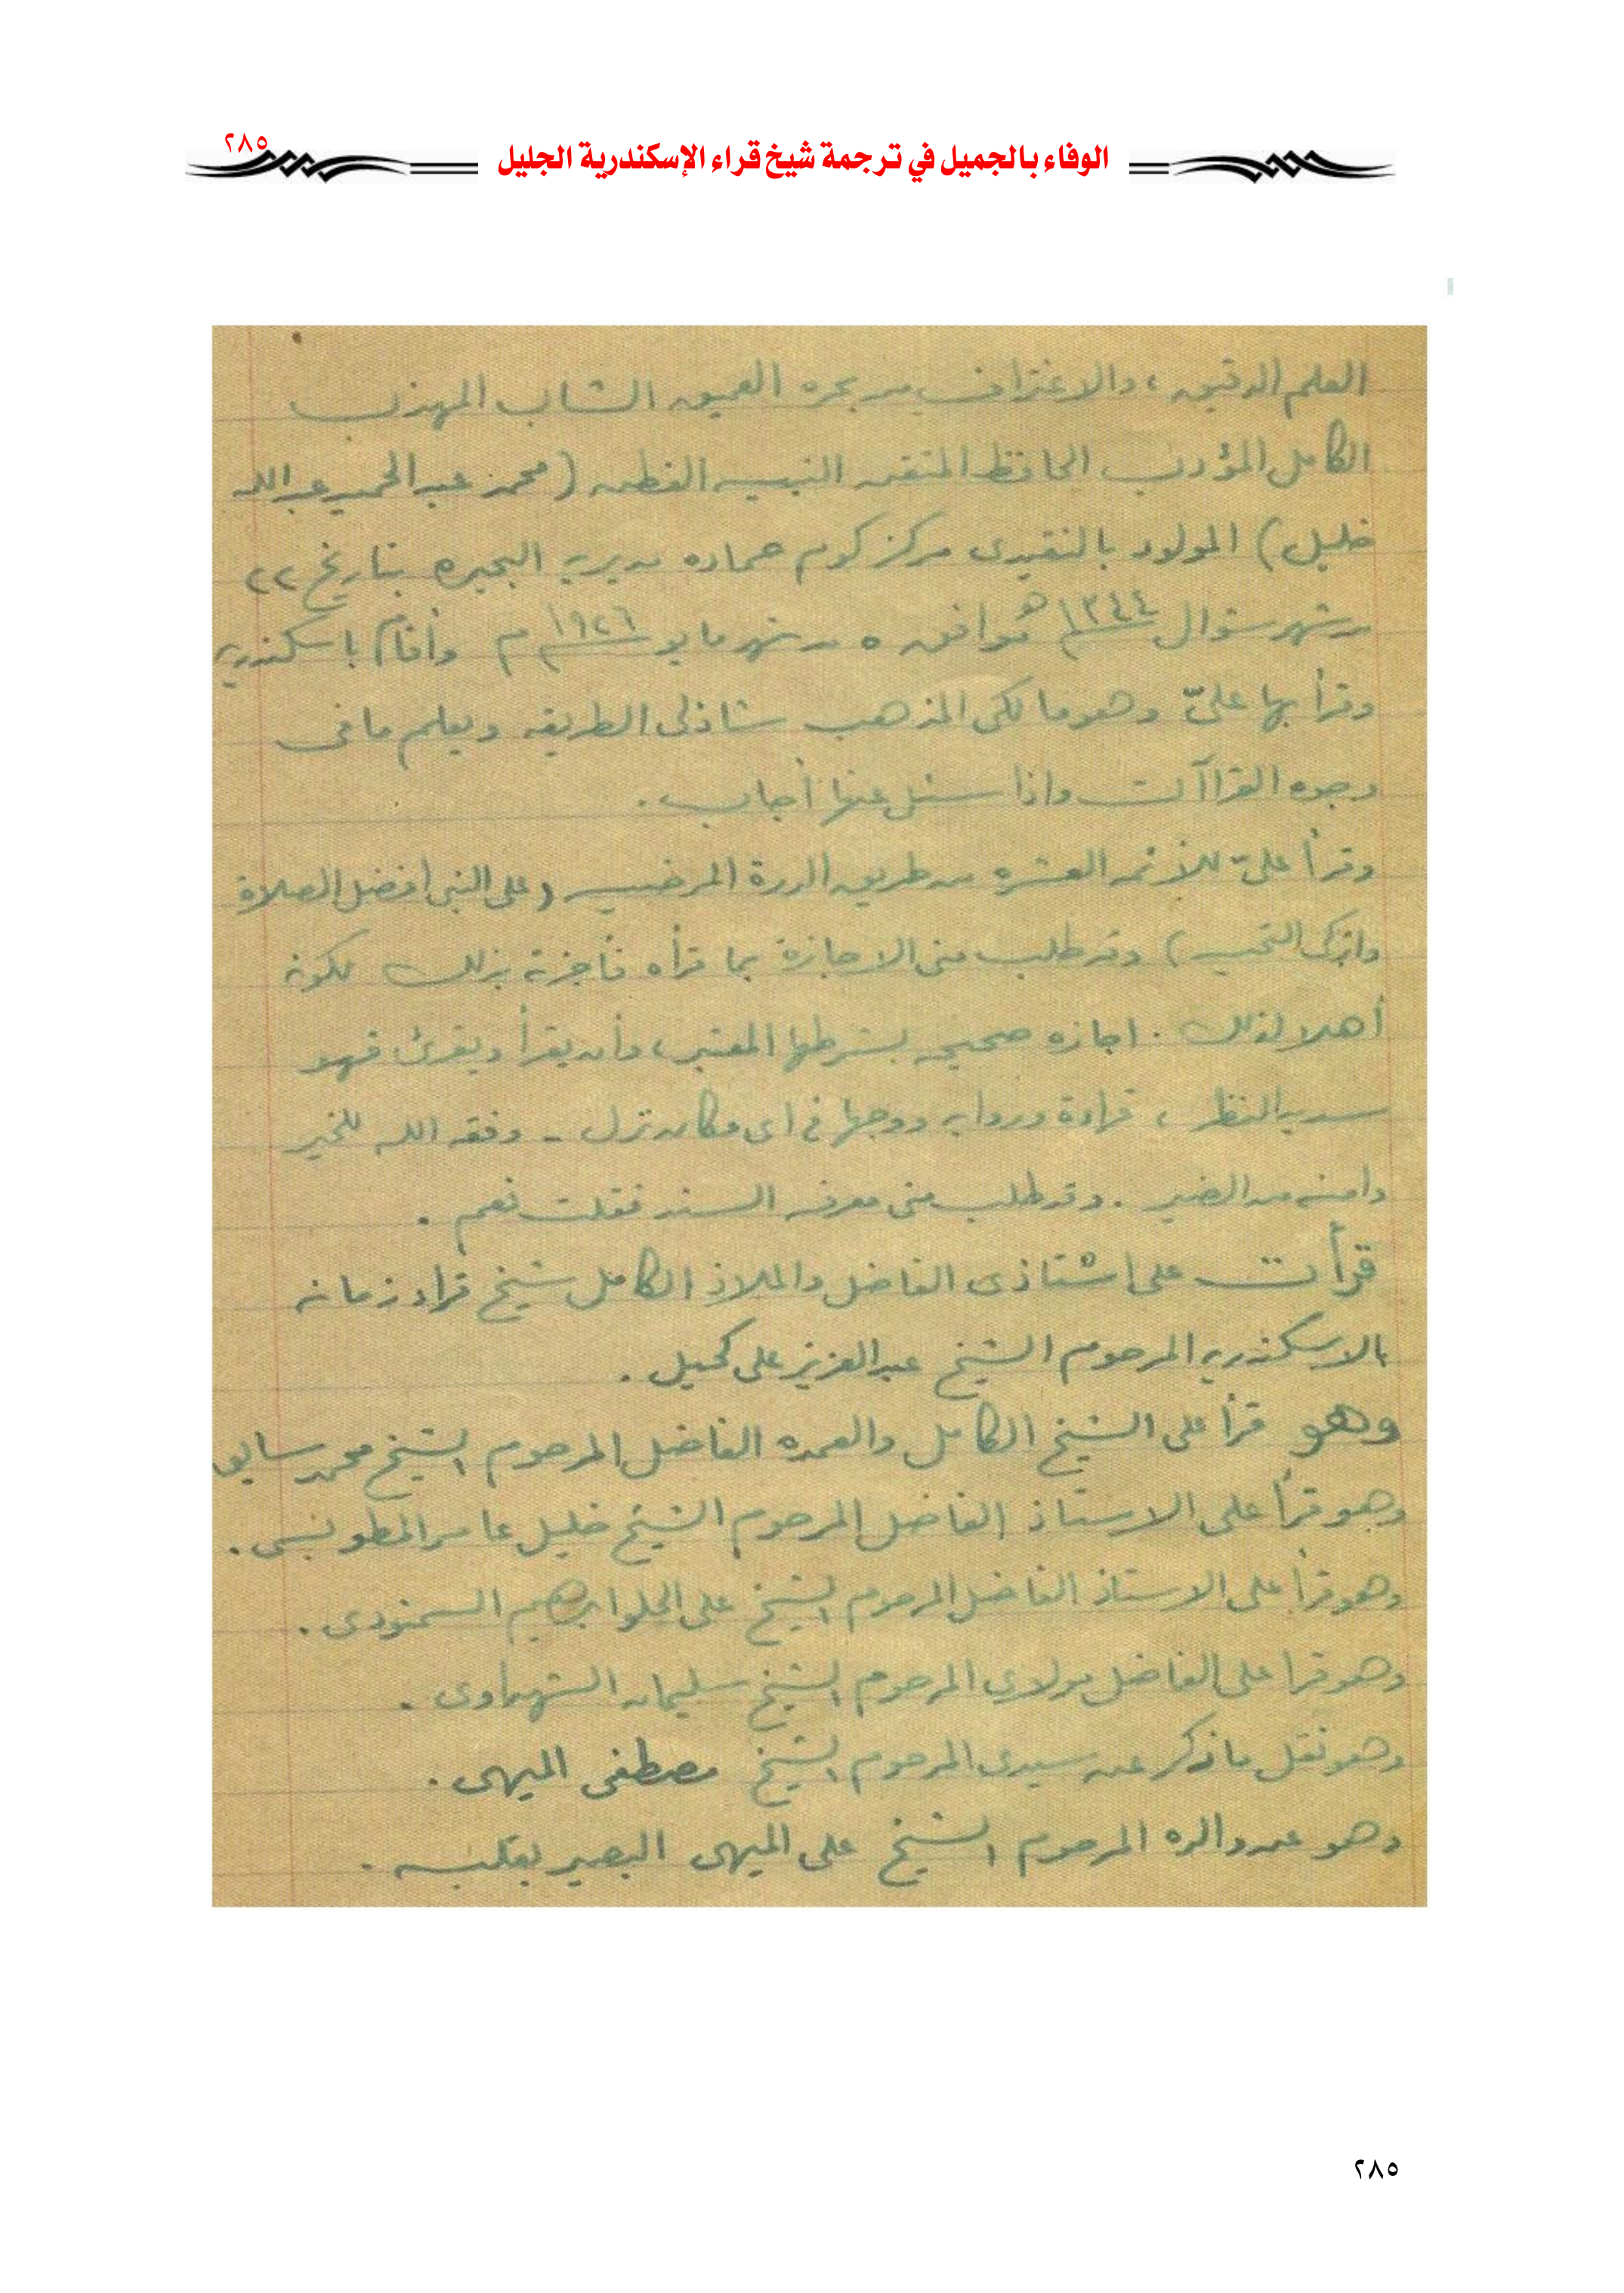 الوفاء بالجميل في ترجمة شيخ قراء الإسكندرية الجليل
٢٨٥
العلم الدقيق، والاغتراف من بحره العميق الشاب المهذب
الكامل المؤدب الحافظ المتقن النبيه الفطن (محمد عبد الحميد عبد الله
خليل) المولود بالنقيدى مركز كوم حماده مديرية البحيره بتاريخ ٢٢
من شهر شوال ١٣٤٤ هـ موافق ٥ من شهر مايو ١٩٢٦ م وأقام باسكندرية
وقرأ بها علىّ وهو مالكى المذهب شاذلى الطريقه ويعلم ما فى
وجوه القراآت واذا سئل عنها أجاب.
وقرأ علىّ للأئمة العشره من طريق الدرة المرضيه (على النبى أفضل الصلاة
وازكى التحيه) وقد طلب منى الاجازة بما قرأه فأجزته بذلك لكونه
أهلا لذلك. اجازه صحيحه بشرطها المعتبر، وأن يقرأ ويقرئ فهو
سديد النظر، قراءة ورواية ووجها فى اى مكان نزل - وفقه الله للخير
وامنه من الضير. وقد طلب منى معرفة السند فقلت نعم.
قرأت على استاذى الفاضل والملاذ الكامل شيخ قراء زمانه
بالاسكندريه المرحوم الشيخ عبد العزيز على كحيل.
وهو قرأ على الشيخ الكامل والعمده الفاضل المرحوم الشيخ محمد سابق
وهو قرأ على الاستاذ الفاضل المرحوم الشيخ خليل عامر المطوبسى.
وهو قرأ على الاستاذ الفاضل المرحوم الشيخ على الحلو ابرهيم السمنودى.
وهو قرا على الفاضل مولاى المرحوم الشيخ سليمان الشهداوى.
وهو نقل ما ذكر عن سيدى المرحوم الشيخ مصطفى الميهى.
وهو عن والده المرحوم الشيخ على الميهى البصير بقلبه.
٢٨٥